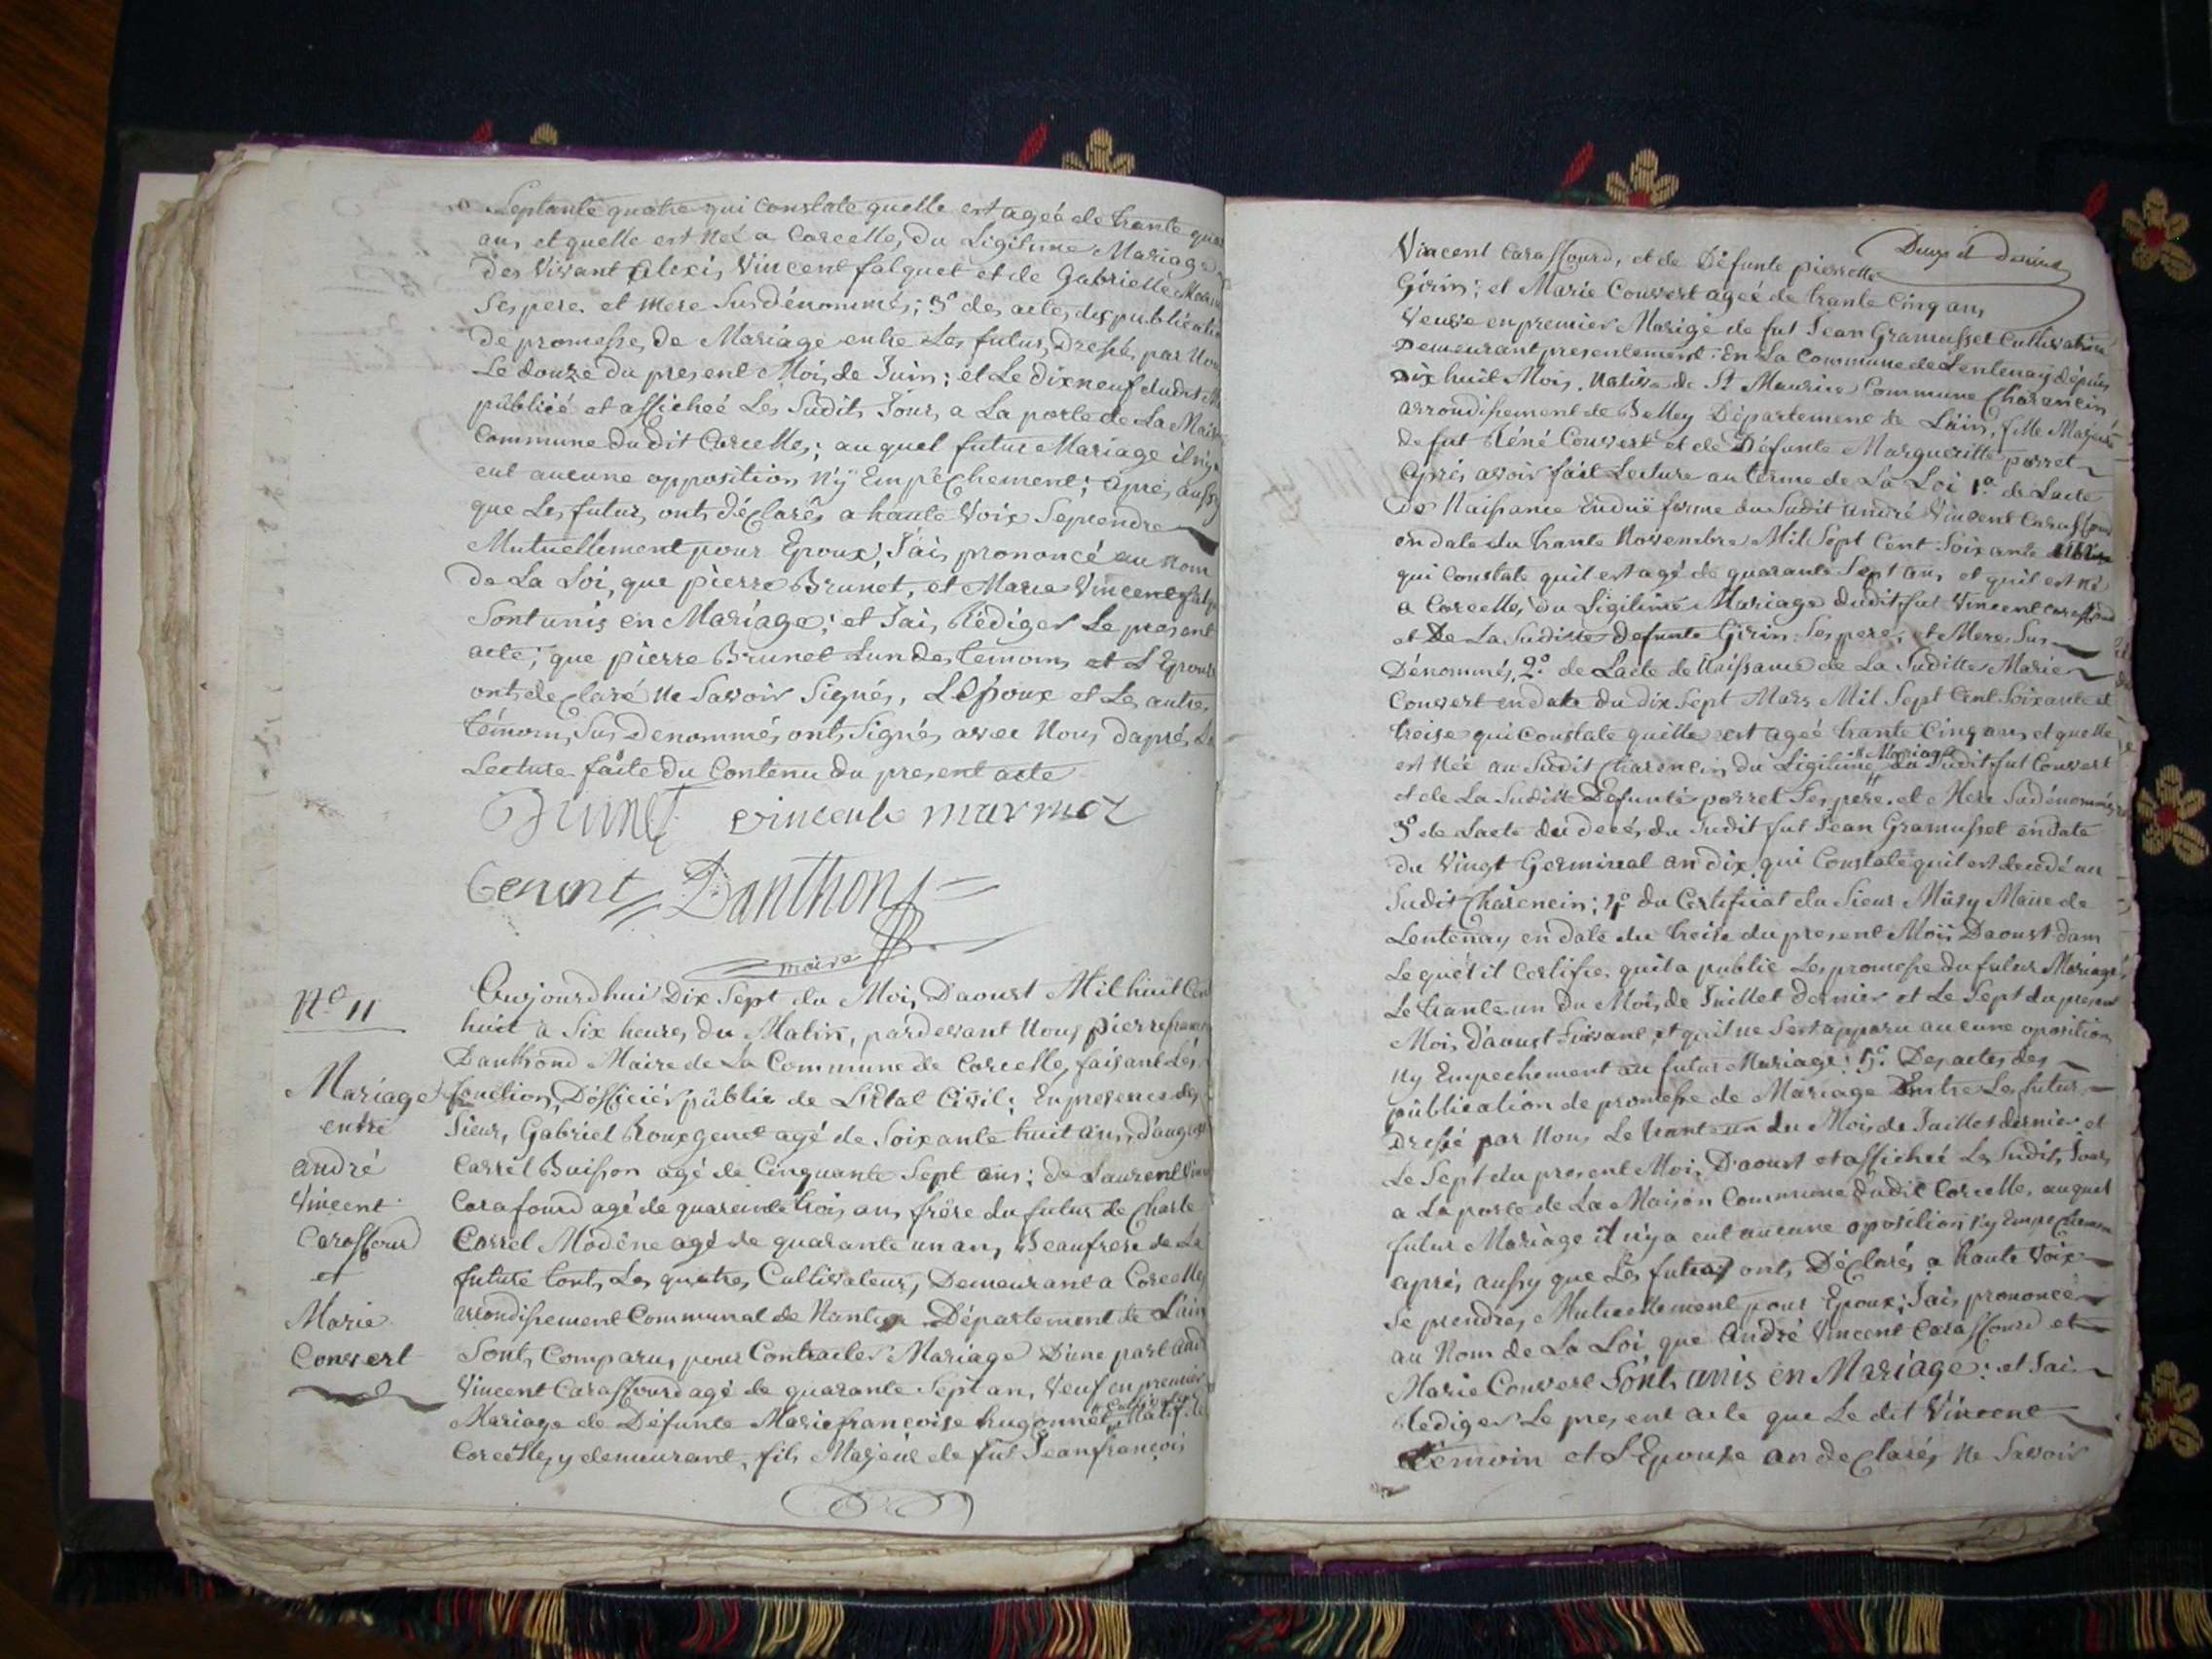 Septante quatre qui constate quelle est ageé de trante
ans et quelle est Neé a Corcelle, du Ligitime Mariage
des Vivant Alexis Vincent falquet et de Gabrielle
Ses pere et mere Susdénommés; 3º des actes des publication
De promesse de Mariage entre Les futurs Dressé par Nous
Le douze du present Mois de Juin; et Le dixneuf dudit
publiéé et afficheé Les Sudits Jours a La porte de La
Commune dudit Corcelle; auquel future Mariage il n'y a
eut aucune opposition N'y Empêchement; après aussy
que Les futurs onts déclarés a haute Voix Seprendre
Mutuellement pour Epoux; J'ais prononcé au nom
De La Loi, que pierre Brunet, et Marie Vincent
Sont unis en Mariage; et Jais Rédiger Le present
acte; que pierre Brunet Lun des temoins et L'Epouse
onts declaré Ne Savoir Signés, LEpoux et Les autres
témoins Sus Denommés onts Signés avec Nous dapres La
Lecture faite du Contenu du present acte
Brunet vincent marmet
Genint Danthon
maire
Nº 11
Mariage
entre
André
Vincent
Caraffourd
et
Marie
Convert
Aujourdhui Dix Sept du Mois Daoust Mil huit Cent
huit à Six heures du Matin, pardevant Nous pierre
Danthond Maire de La Commune de Corcelle, faisant Les
fonctions Dofficiér públic de L'état Civil; En presence des
Sieurs Gabriel Rouxgenet agé de Soixante huit ans,
Carrel Buisson agé de Cinquante Sept ans; de Laurent
Carafourd agé de quarante trois ans frère du futur de Charle
Carrel Modéne agé de quarante un ans Beaufrere de La
future touts Les quatres Cultivateurs Demeurant a Corcelle
arrondissement Communal de Nantua Département de L'ain
Sont Comparus pour Contracter Mariage D'une part
Vincent Caraffourd agé de quarante Sept ans, Veuf en premier
Cultivateur
Mariage de Défunte Mariefrançoise hugonnet, Natif de
Corcelle, y demeurant, fils Majeur de fut Jeanfrançois
Vincent Caraffourd, et de Défunte pierrette
Girin; et Marie Convert ageé de trante Cinq ans
Veuve en premier Marigé de fut Jean Gramusset Cultivatrice
Demeurant presentement En La Commune de Lentenay dépuis
Dix huit Mois, Native de St Maurice Commune Charancin
arrondissement de Belley Département de L'ain, fille Majeure
de fut Réné Convert et de Défunte Margueritte porret
Après avoir fait Lecture au terme de La Loi 1º de Lacte
De Naissance Enduë forme du Sudit André Vincent Caraffourd
en date du trante Novembre Mil Sept Cent Soixante
qui Constate quil est agé de quarante Sept ans et quil est né
a Corcelle, du Ligitime Mariage dudit fut Vincent Caraffourd
et De La Suditte defunte Girin. Ses pere, et Mere Sus
Dénommés, 2º. de Lacte de Naissance de La Suditte Marie
Convert en date du dix Sept Mars Mil Sept Cent Soixante et
treise qui Constate quelle est ageé trante Cinq ans et quelle
Mariage
est Née au Sudit Charencin du Ligitime du Sudit fut Convert
et de La Suditte Defunte porret Ses pere et Mere Sudénommés
3º de Lacte du decés du Sudit fut Jean Gramusset en date
du Vingt Germinal an dix, qui Constate quil est decédé au
Sudit Charencin; 4º du Certificat du Sieur Mûsy Maire de
Lentenay en date du treise du present Mois Daoust dans
Le quel il Certifie quil a publié Les promesse du futur Mariage
Le trante un Du Mois de Juillet dernier et Le Sept du present
Mois d'aoust Suivant, et quil ne S'est apparu aucune oposition
Ny Empechement au futur Mariage; 5º. Des actes des
publication de promesse de Mariage Entre Les futurs
Dressé par Nous Le trante un du Mois de Juillet dernier et
Le Sept du present Mois D'aoust et afficheé Les Sudits Jours
a La porte de La Maison Commune dudit Corcelle, auquel
futur Mariage il n'y a eut aucune oposition n'y Empechement
après aussy que Les futurs onts Déclarés a haute Voix
Se prendre Mutuellement pour Epoux; Jais prononcé
au Nom de La Loi que André Vincent Caraffourd et
Marie Convert Sonts unis en Mariage; et Jais
Rediger Le present acte que Le dit Vincent
témoin et L'Epouse on declarés Ne Savoir